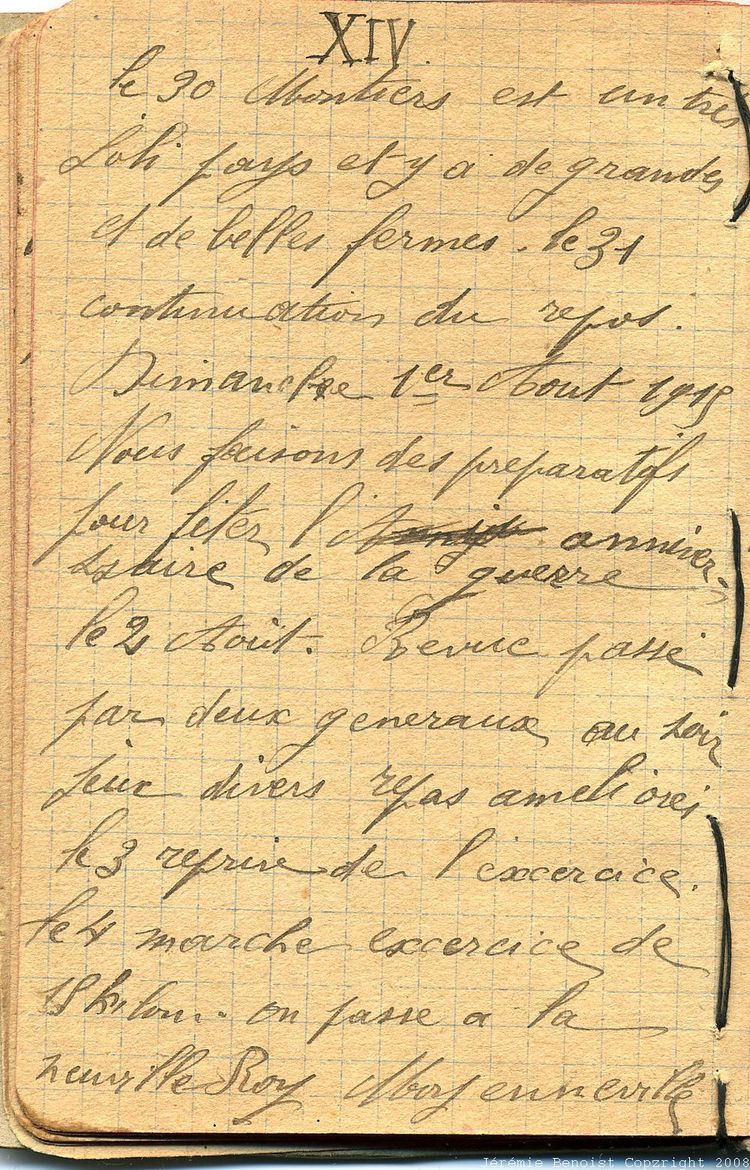 XIV
le 30 Montiers est un tres
Joli pays et y a de grandes
et de belles fermes. le 31
continuation du repos.
Dimanche 1er Aout 1915
Nous faisons des preparatifs
pour fêter l' anniver-
ssaire de la guerre
le 2 Août. Revue passé
par deux generaux au soir
jeux divers repas ameliorei
le 3 reprise de l'excercice.
le 4 marche excercice de
kilom. on passe a la
neuville Roy Moyenneville
Jérémie Benoist Copzright 2008